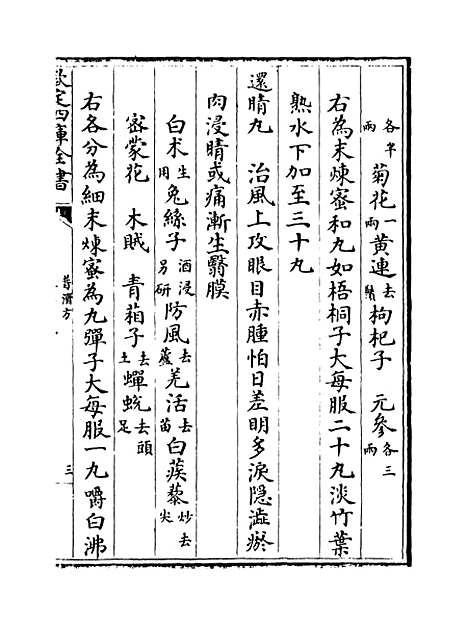 各半兩菊花一兩黄連去鬚枸杞子 元參各三兩
右為末煉蜜和丸如梧桐子大每服二十丸淡竹葉
熟水下加至三十丸
還睛丸 治風上攻眼目赤腫怕日羞明多淚隱澁瘀
肉浸睛或痛漸生翳膜
白术生用兔絲子酒浸另研防風去蘆羌活去苗白蒺藜炒去尖
密蒙花 木賊 青葙子去土蟬蛻去頭足
右各分為細末煉蜜為丸彈子大每服一丸嚼白沸
欽定四庫全書
普濟方
三